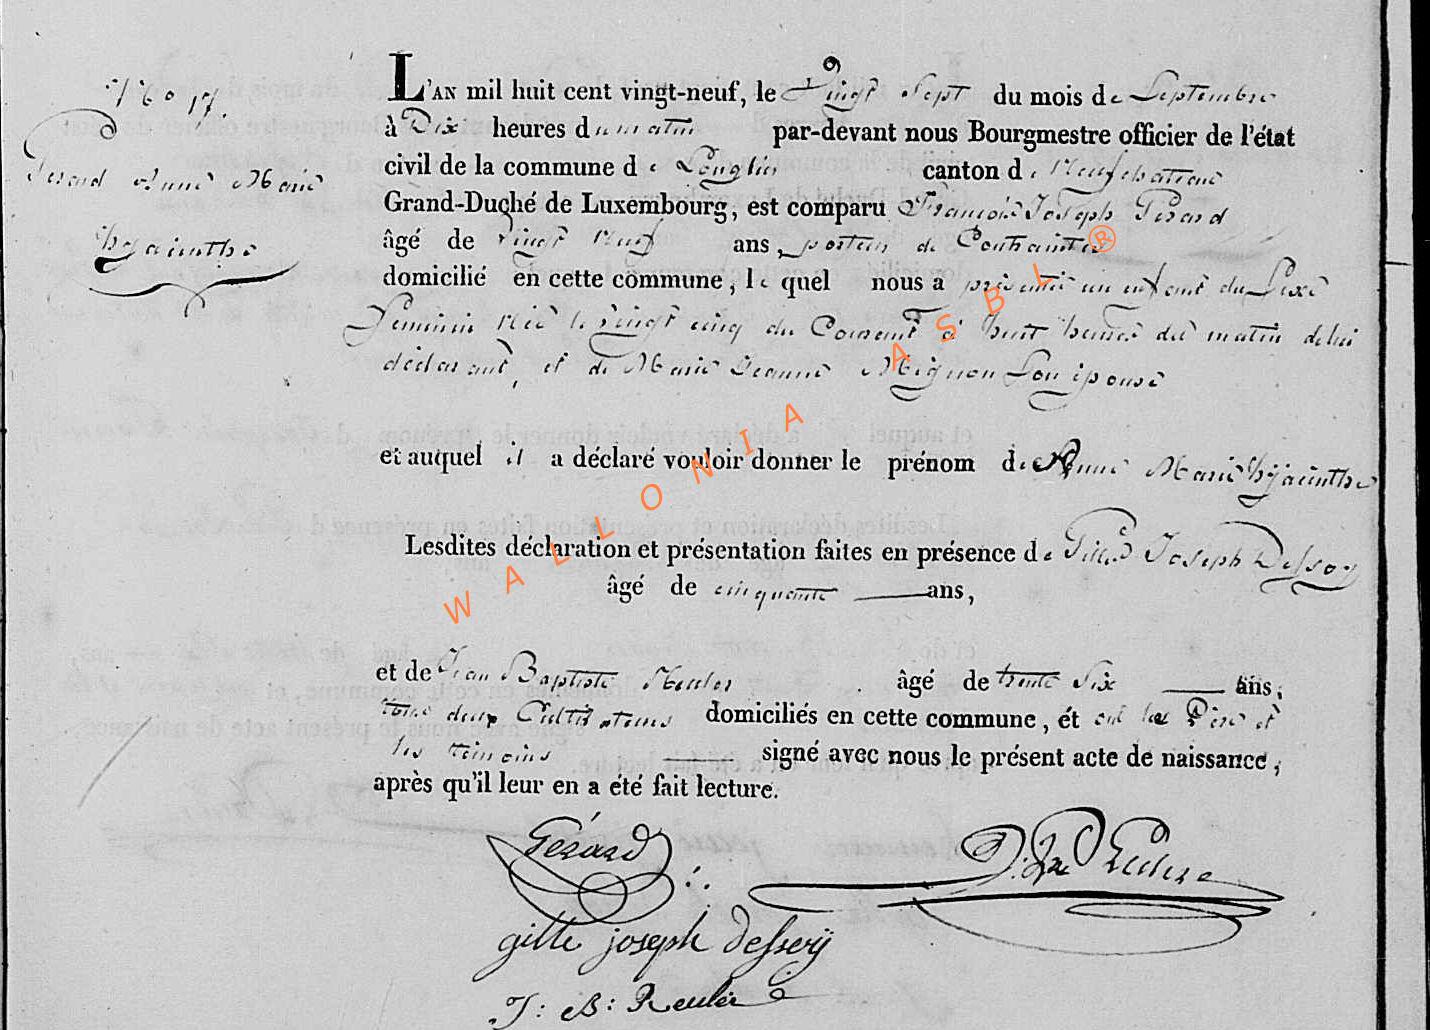 N.o 17.
Gerard Anne Marie
hyacinthe
L'AN mil huit cent vingt-neuf, le Vingt Sept du mois de Septembre
à Dix heures du matin par-devant nous Bourgmestre officier de l'état
civil de la commune de Longlier canton de Neufchateau
Grand-Duché de Luxembourg, est comparu François Joseph Gerard
âgé de vingt Neuf ans, porteur de Contraintes
domicilié en cette commune, le quel nous a presenté un enfant du Sexe
Feminin Née le vingt cinq du Courant à huit heures du matin de lui
déclarant, et de Marie Jeanne Mignon Son épouse
et auquel il a déclaré vouloir donner le prénom de Anne Marie hyacinthe
Lesdites déclaration et présentation faites en présence de Gille Joseph Dessoy
âgé de cinquante ans,
et de Jean Baptiste Reuler âgé de trente Six ans,
tous deux Cultivateurs domiciliés en cette commune, et ont les Père et
les témoins signé avec nous le présent acte de naissance,
après qu'il leur en a été fait lecture.
Gérard
gille joseph desseÿ
J: B: Reuler
WALLONIA ASBL ®